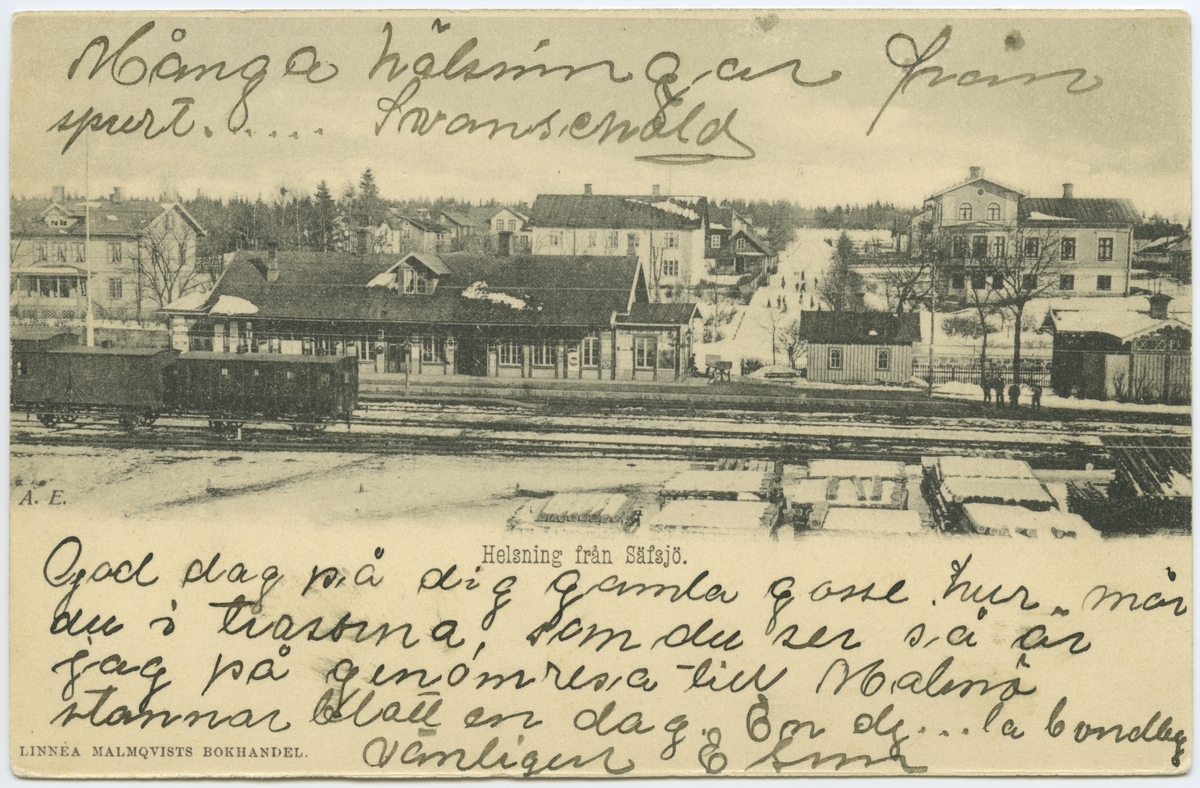 Många hälsningar från
spurt...... Svanschöld
A. E.
Helsning från Säfsjö.
God dag på dig gamla gosse hur mår
du i trasorna, som du ser så är
jag på genomresa till Malmö
stannar blott en dag. En dj...la bondbg
LINNÉA MALMQVISTS BOKHANDEL.
Vänligen E